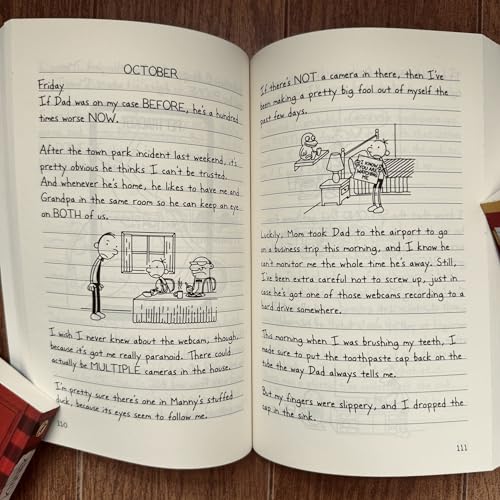 OCTOBER
Friday
If Dad was on my case BEFORE, he's a hundred
times worse NOW.
After the town park incident last weekend, it's
pretty obvious he thinks I can't be trusted.
And whenever he's home, he likes to have me and
Grandpa in the same room so he can keep an eye
on BOTH of us.
I wish I never knew about the webcam, though,
because it's got me really paranoid. There could
actually be MULTIPLE cameras in the house.
I'm pretty sure there's one in Manny's stuffed
duck, because its eyes seem to follow me.
110
If there's NOT a camera in there, then I've
been making a pretty big fool out of myself the
past few days.
I KNOW
YOU ARE
WATCHING
ME
Luckily, Mom took Dad to the airport to go
on a business trip this morning, and I know he
can't monitor me the whole time he's away. Still,
I've been extra careful not to screw up, just in
case he's got one of those webcams recording to a
hard drive somewhere.
This morning when I was brushing my teeth, I
made sure to put the toothpaste cap back on the
tube the way Dad always tells me.
But my fingers were slippery, and I dropped the
cap in the sink.
111